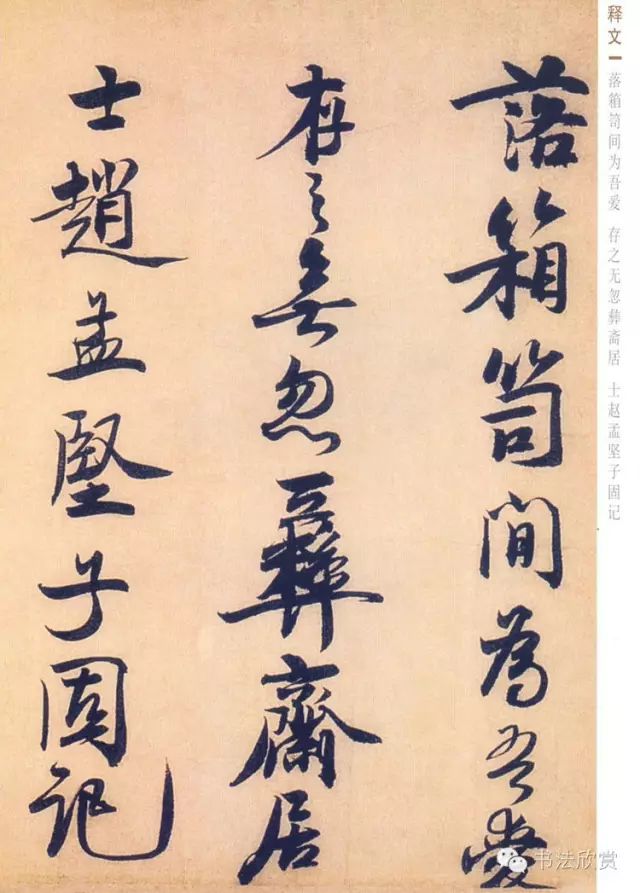 落箱笥間為吾愛
存之無忽彝齋居
士趙孟堅子固記
释文
落箱笥间为吾爱 存之无忽彝斋居 士赵孟坚子固记
书法欣赏